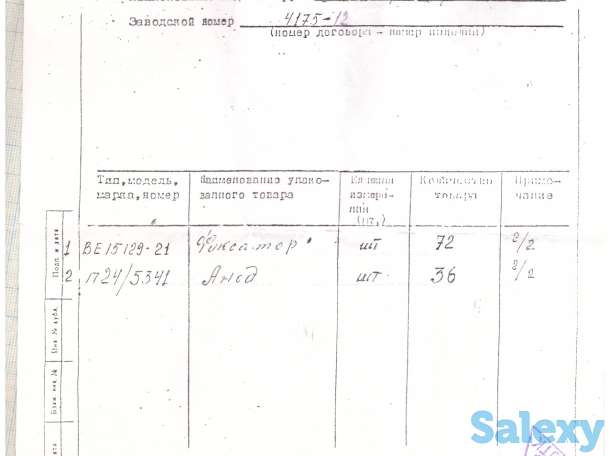 Заводской номер 4175-12
(номер договора - номер машины)
Тип, модель, марка, номер
Наименование упакованного товара
Единица измерений (шт.)
Количество товара
Примечание
1 ВЕ15129-21 Фиксатор шт 72 2/2
2 П24/5341 Анод шт 36 2/2
Подп. и дата
Инв. № дубл.
Взам. инв. №
Salexy